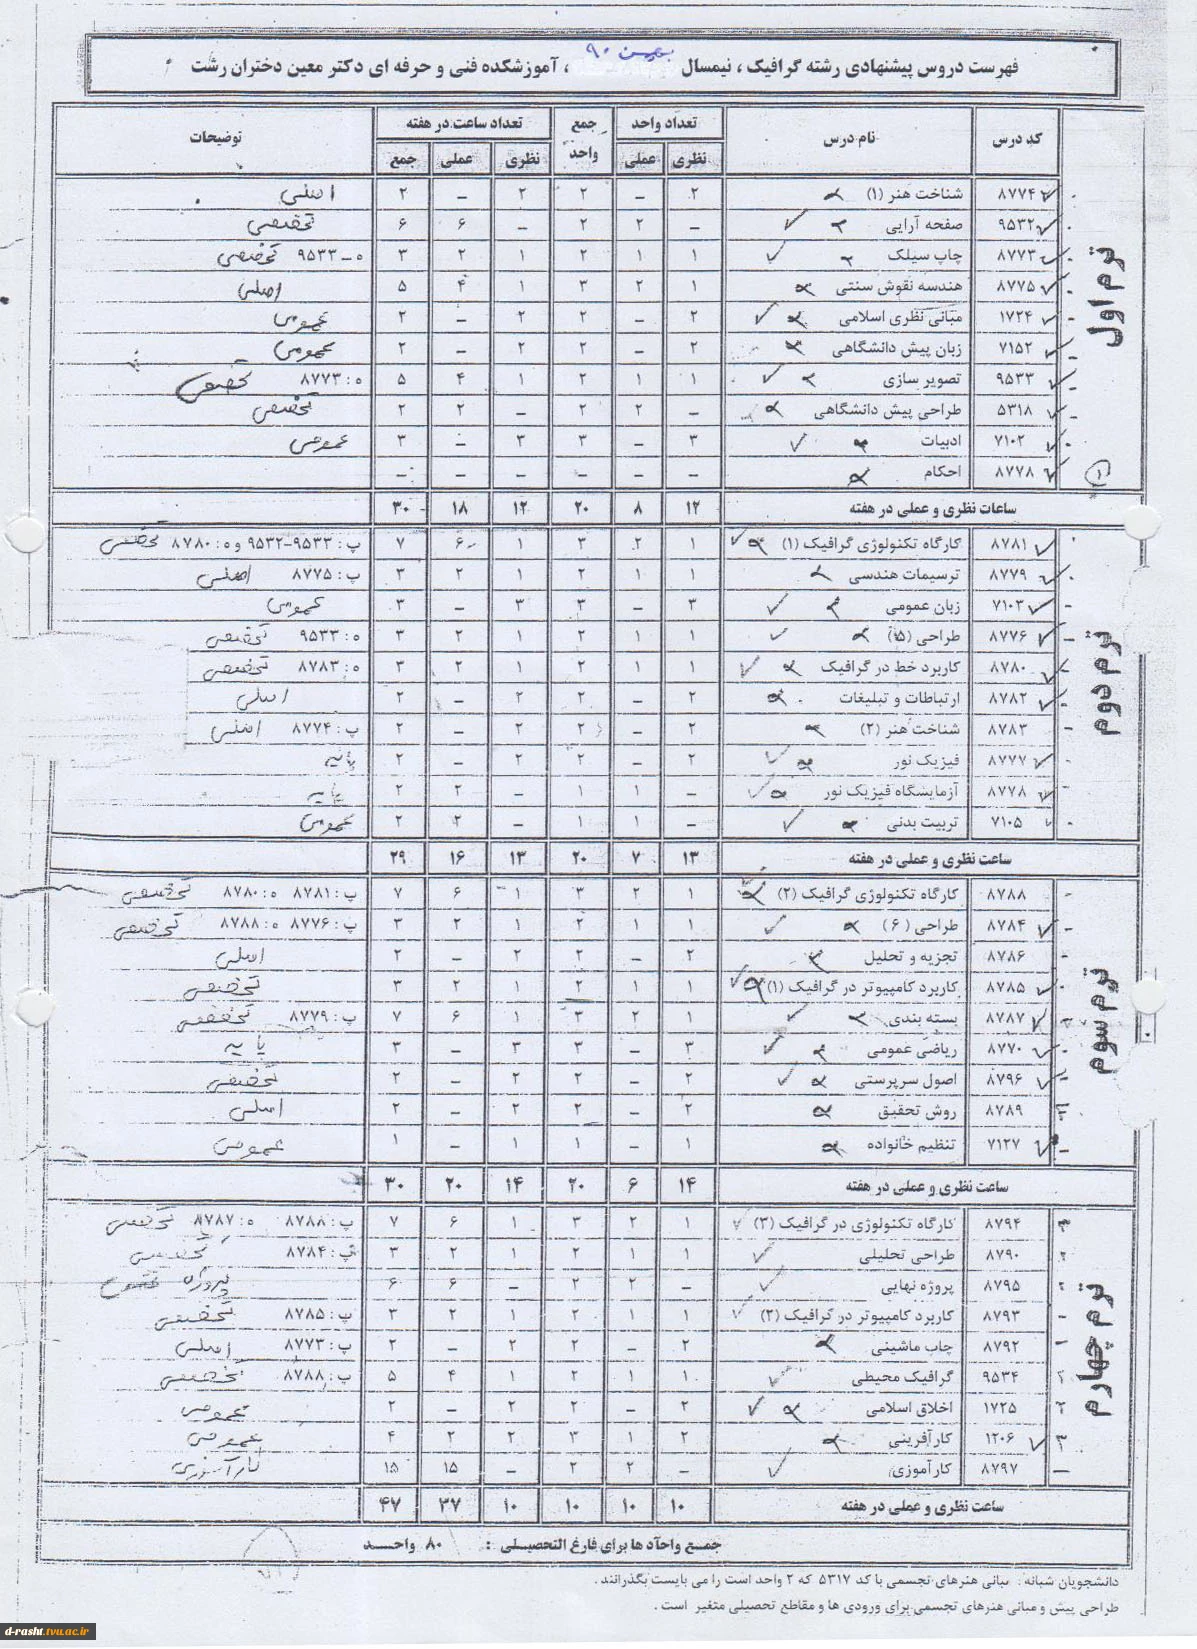 فهرست دروس پیشنهادی رشته گرافیک ، نیمسال بهمن ۹۰ ، آموزشکده فنی و حرفه ای دکتر معین دختران رشت
کد درس نام درس تعداد واحد جمع واحد تعداد ساعت در هفته توضیحات
نظری عملی نظری عملی جمع
ترم اول
۸۷۷۴ شناخت هنر (۱) ۲ – ۲ ۲ – ۲ اصلی
۹۵۳۲ صفحه آرایی – ۲ ۲ – ۶ ۶ تخصصی
۸۷۷۳ چاپ سیلک ۱ ۱ ۲ ۱ ۲ ۳ ه– ۹۵۳۳ تخصصی
۸۷۷۵ هندسه نقوش سنتی ۱ ۲ ۳ ۱ ۴ ۵ اصلی
۱۷۲۴ مبانی نظری اسلامی ۲ – ۲ ۲ – ۲ عمومی
۷۱۵۲ زبان پیش دانشگاهی ۲ – ۲ ۲ – ۲ عمومی
۹۵۳۳ تصویر سازی ۱ ۱ ۲ ۱ ۴ ۵ ه : ۸۷۷۳ تخصصی
۵۳۱۸ طراحی پیش دانشگاهی – ۲ ۲ – ۲ ۲ تخصصی
۷۱۰۲ ادبیات ۳ – ۳ ۳ – ۳ عمومی
۸۷۷۸ احکام – – – – – –
ساعات نظری و عملی در هفته ۱۲ ۸ ۲۰ ۱۲ ۱۸ ۳۰
ترم دوم
۸۷۸۱ کارگاه تکنولوژی گرافیک (۱) ۱ ۲ ۳ ۱ ۶ ۷ پ : ۹۵۳۳–۹۵۳۲ و ه : ۸۷۸۰ تخصصی
۸۷۷۹ ترسیمات هندسی ۱ ۱ ۲ ۱ ۲ ۳ پ : ۸۷۷۵ اصلی
۷۱۰۳ زبان عمومی ۳ – ۳ ۳ – ۳ عمومی
۸۷۷۶ طراحی (۵) ۱ ۱ ۲ ۱ ۲ ۳ ه : ۹۵۳۳ تخصصی
۸۷۸۰ کاربرد خط در گرافیک ۱ ۱ ۲ ۱ ۲ ۳ ه : ۸۷۸۳ تخصصی
۸۷۸۲ ارتباطات و تبلیغات ۲ – ۲ ۲ – ۲ اصلی
۸۷۸۳ شناخت هنر (۲) ۲ – ۲ ۲ – ۲ پ : ۸۷۷۴ اصلی
۸۷۷۷ فیزیک نور ۲ – ۲ ۲ – ۲ پایه
۸۷۷۸ آزمایشگاه فیزیک نور – ۱ ۱ – ۲ ۲ پایه
۷۱۰۵ تربیت بدنی – ۱ ۱ – ۲ ۲ عمومی
ساعت نظری و عملی در هفته ۱۳ ۷ ۲۰ ۱۳ ۱۶ ۲۹
ترم سوم
۸۷۸۸ کارگاه تکنولوژی گرافیک (۲) ۱ ۲ ۳ ۱ ۶ ۷ پ : ۸۷۸۱ ه : ۸۷۸۰ تخصصی
۸۷۸۴ طراحی (۶) ۱ ۱ ۲ ۱ ۲ ۳ پ : ۸۷۷۶ ه : ۸۷۸۸ تخصصی
۸۷۸۶ تجزیه و تحلیل ۲ – ۲ ۲ – ۲ اصلی
۸۷۸۵ کاربرد کامپیوتر در گرافیک (۱) ۱ ۱ ۲ ۱ ۲ ۳ تخصصی
۸۷۸۷ بسته بندی ۱ ۲ ۳ ۱ ۶ ۷ پ : ۸۷۷۹ تخصصی
۸۷۷۰ ریاضی عمومی ۳ – ۳ ۳ – ۳ پایه
۸۷۹۶ اصول سرپرستی ۲ – ۲ ۲ – ۲ تخصصی
۸۷۸۹ روش تحقیق ۲ – ۲ ۲ – ۲ اصلی
۷۱۲۷ تنظیم خانواده ۱ – ۱ ۱ – ۱ عمومی
ساعت نظری و عملی در هفته ۱۴ ۶ ۲۰ ۱۴ ۲۰ ۳۰
ترم چهارم
۸۷۹۴ کارگاه تکنولوژی در گرافیک (۳) ۱ ۲ ۳ ۱ ۶ ۷ پ : ۸۷۸۸ ه : ۸۷۸۷ تخصصی
۸۷۹۰ طراحی تحلیلی ۱ ۱ ۲ ۱ ۲ ۳ پ : ۸۷۸۴ تخصصی
۸۷۹۵ پروژه نهایی – ۲ ۲ – ۶ ۶ پروژه تخصصی
۸۷۹۳ کاربرد کامپیوتر در گرافیک (۲) ۱ ۱ ۲ ۱ ۲ ۳ پ : ۸۷۸۵ تخصصی
۸۷۹۲ چاپ ماشینی ۲ – ۲ ۲ – ۲ پ : ۸۷۷۳ اصلی
۹۵۳۴ گرافیک محیطی ۱ ۱ ۲ ۱ ۴ ۵ پ : ۸۷۸۸ تخصصی
۱۷۲۵ اخلاق اسلامی ۲ – ۲ ۲ – ۲ عمومی
۱۲۰۶ کارآفرینی ۲ ۱ ۳ ۲ ۲ ۴ عمومی
۸۷۹۷ کارآموزی – ۲ ۲ – ۱۵ ۱۵ کارآموزی
ساعت نظری و عملی در هفته ۱۰ ۱۰ ۱۰ ۱۰ ۳۷ ۴۷
جمع واحدها برای فارغ التحصیلی : ۸۰ واحد
دانشجویان شبانه : مبانی هنرهای تجسمی با کد ۵۳۱۷ که ۲ واحد است را می بایست بگذرانند .
طراحی پیش و مبانی هنرهای تجسمی برای ورودی ها و مقاطع تحصیلی متغیر است .
d-rasht.tvu.ac.ir